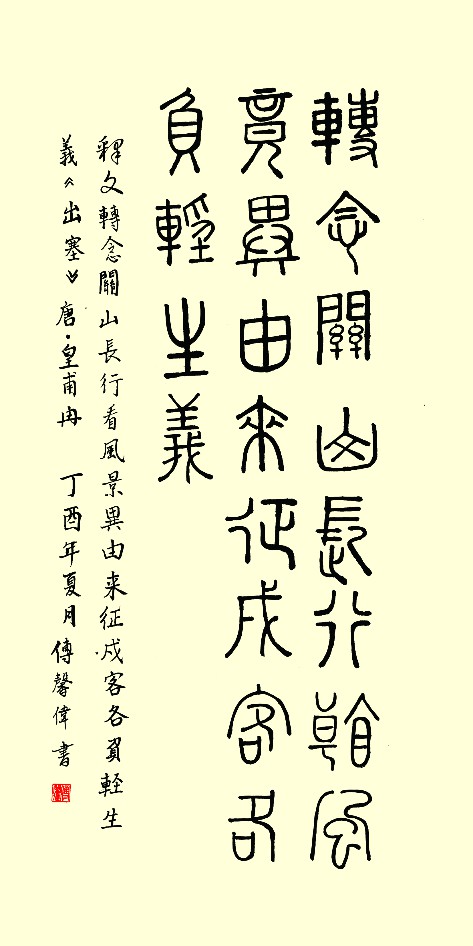 轉念關山長行看風
景異由來征戍客各
負輕生義
釋文轉念關山長行看風景異由来征戍客各負輕生
義《出塞》唐·皇甫冉 丁酉年夏月傅馨偉書